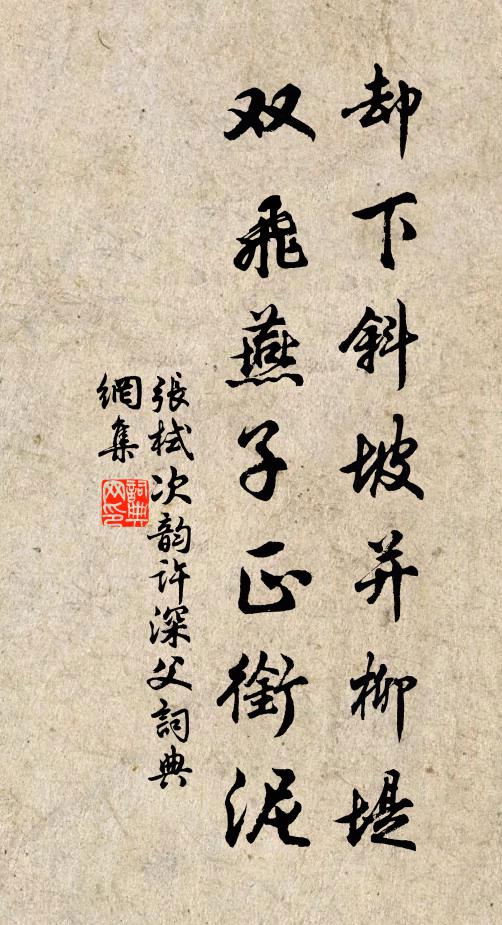 却下斜坡并柳堤
双飛燕子正銜泥
張栻次韵许深父詞典
網集
詞典网印